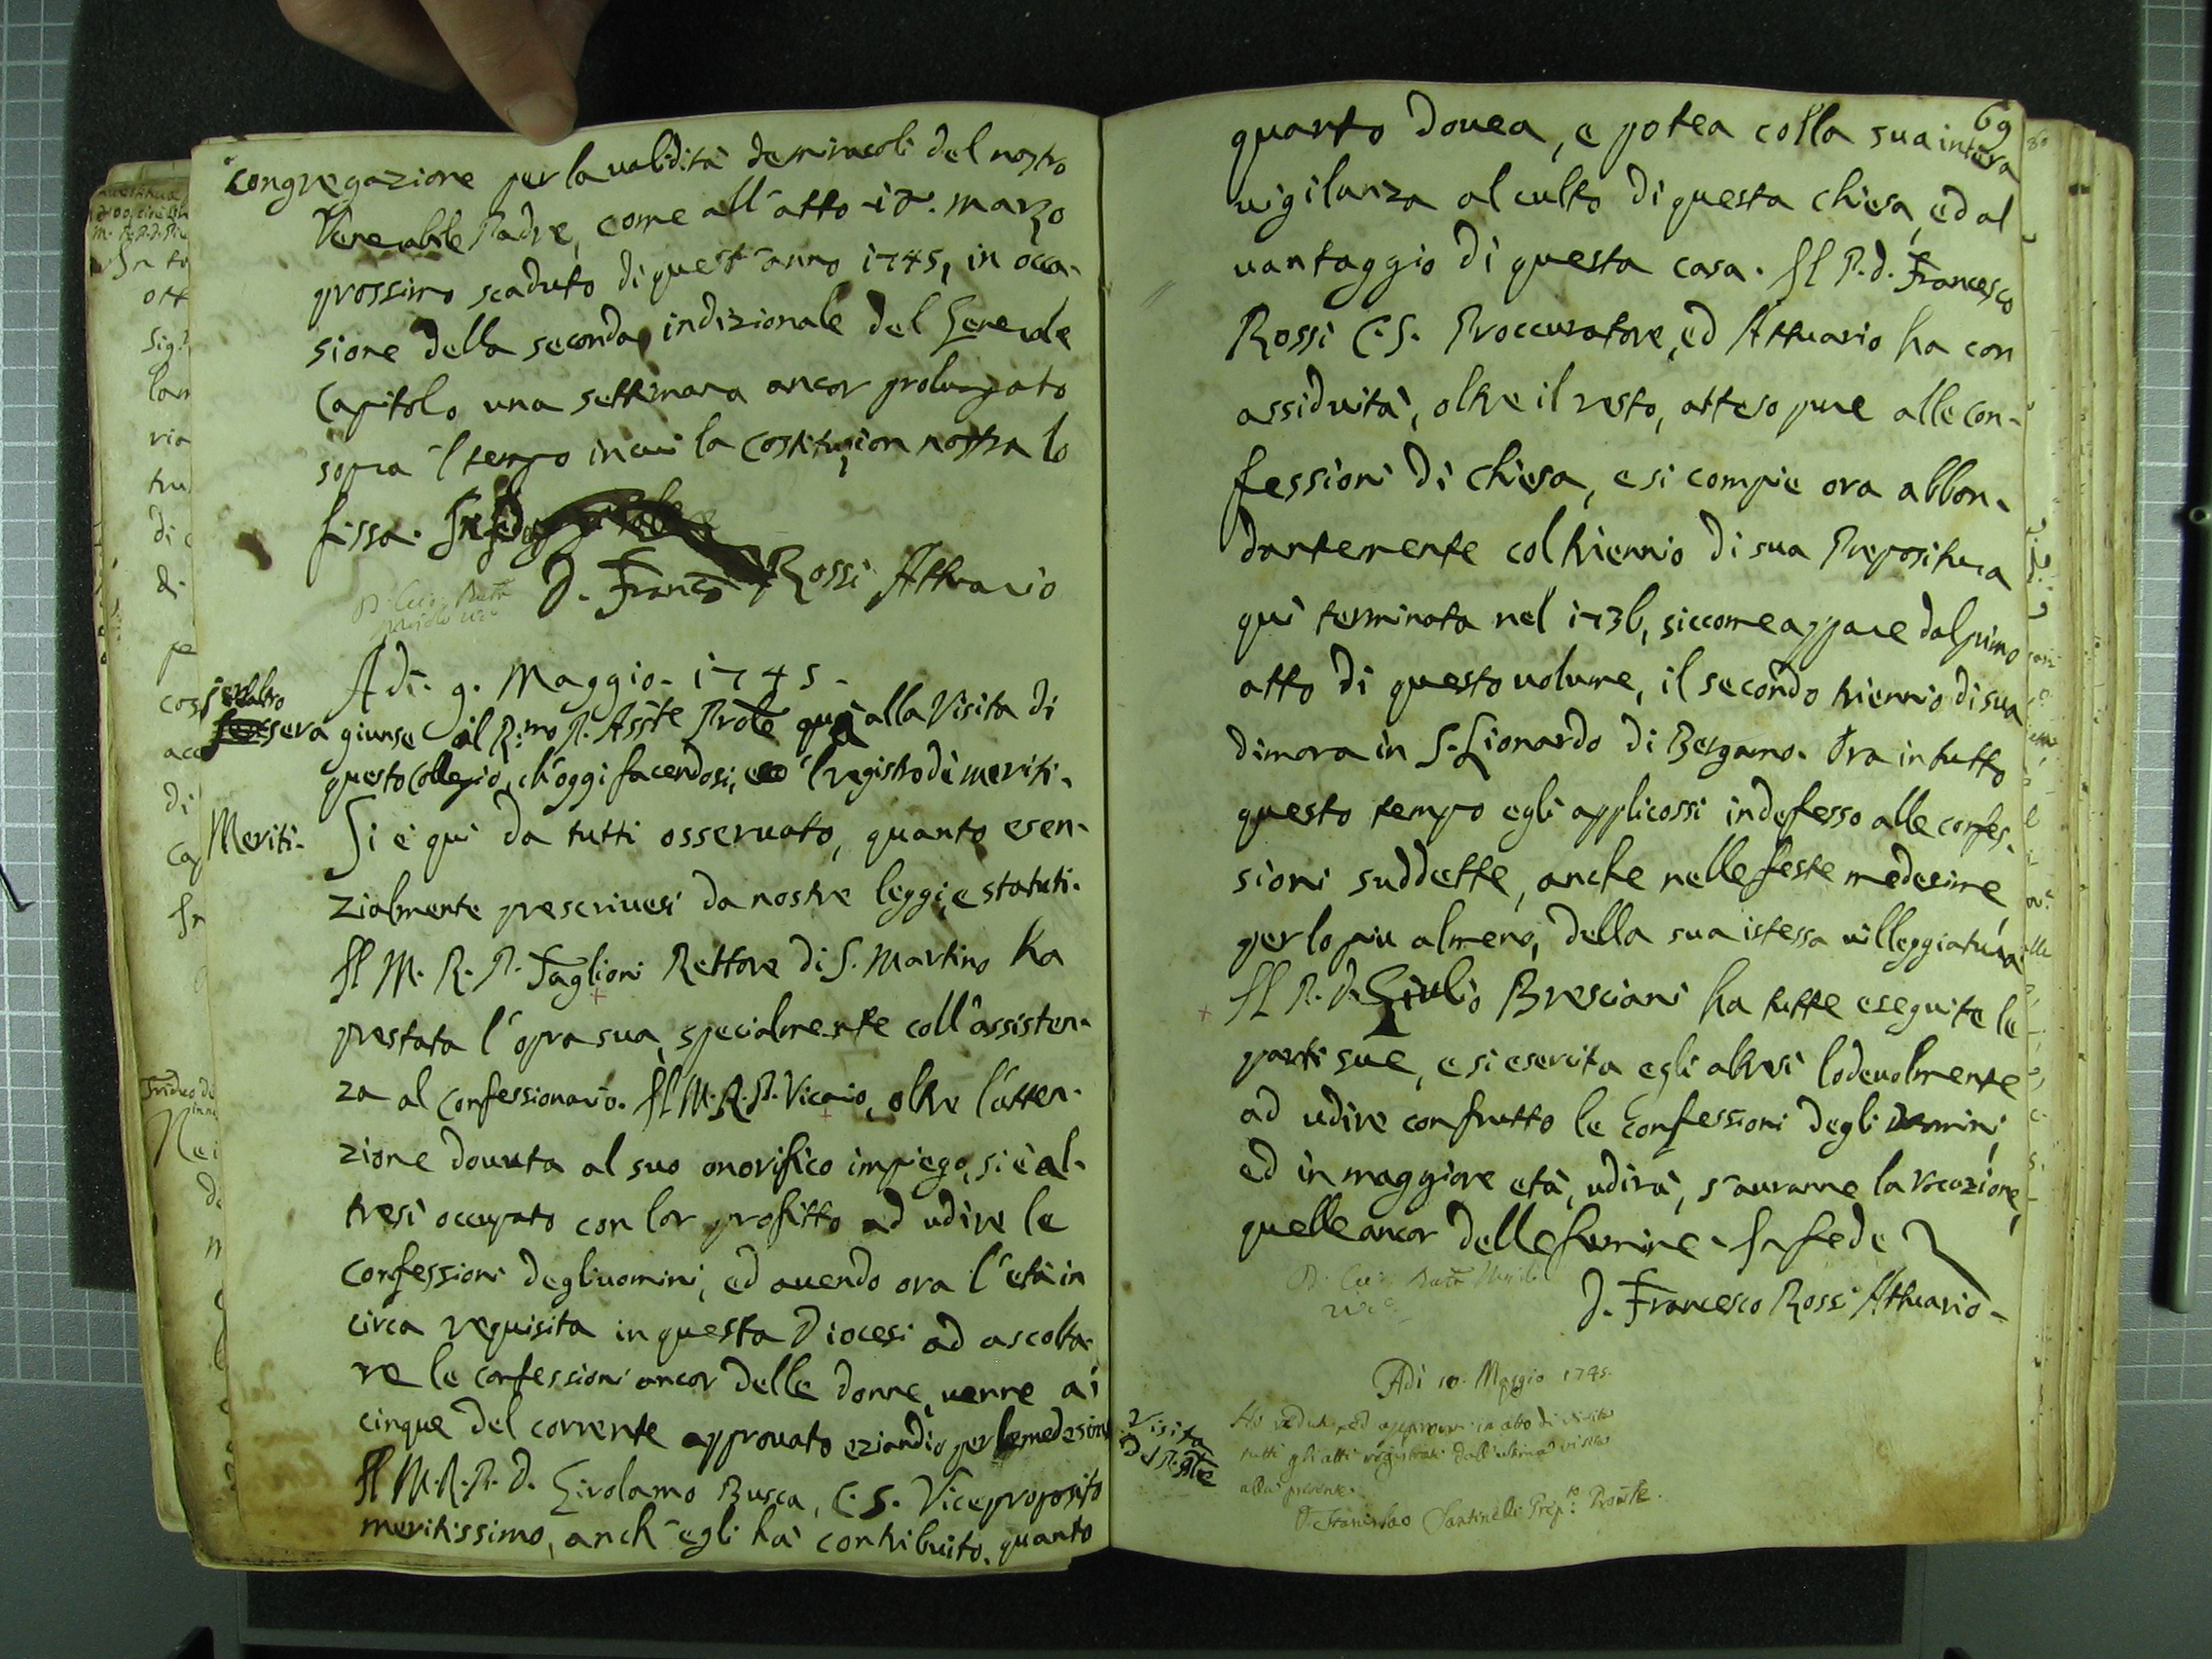 congregazione per la validità de miracoli del nostro
Venerabile Padre, come all'atto 17. marzo
prossimo scaduto di quest'anno 1745, in occa-
sione della seconda indizionale del Generale
Capitolo una settimana ancor prolungato
sopra 'l tempo in cui la Costituzion nostra lo
fissa. In fede
D. Franc.o Rossi Attuario
Adì. 9. Maggio. 1745.
jeraltro
sera giunse il R.mo P. Ass̃te Prõle quì alla Visita di
questo Collegio, ch'oggi facendosi, ecco 'l registro dè meriti.
Meriti.
Si è quì da tutti osservato, quanto esen-
zialmente prescrivesi da nostre leggi, e statuti.
Il M. R. P. Taglioni Rettore di S. Martino ha
prestata l'opra sua, specialmente coll'assisten-
za al confessionario. Il M. R. P. Vicario, oltre l'atten-
zione dovuta al suo onorifico impiego, si è al-
tresì occupato con lor profitto ad udire le
confessioni degli uomini, ed avendo ora l'età in
circa requisita in questa Diocesi ad ascolta-
re le confessioni ancor delle donne, venne ai
cinque del corrente approvato eziandio per le medesime
Il M. R. P. D. Girolamo Busca, C. S. Viceproposito
meritissimo, anch'egli hà contribuito, quanto
69
quanto dovea, e potea colla sua intera
vigilanza al culto di questa chiesa, ed al
vantaggio di questa casa. Il P. d. Francesco
Rossi C. S. Proccuratore, ed Attuario ha con
assiduità, oltre il resto, atteso pure alle con-
fessioni di chiesa, e si compie ora abbon-
dantemente col triennio di sua Prepositura
quì terminata nel 1736, siccome appare dal primo
atto di questo volume, il secondo triennio di sua
dimora in S. Lionardo di Bergamo. Ora in tutto
questo tempo egli applicossi indefesso alle confes-
sioni suddette, anche nelle feste medesime,
per lo più almeno, della sua istessa villeggiatura
Il P. d. Giulio Bresciani ha tutte eseguite le
parti sue, e si esercita egli altresì lodevolmente
ad udire con frutto le confessioni degli uomini,
ed in maggiore età, udirà, s'avranne la vocazione,
quelle ancor delle femine. In fede
D. Francesco Rossi Attuario
Adì 10. Maggio 1745.
Visita
del P. Prõle
Ho veduti, ed approvo in atto di visita
tutti gli atti registrati dall'ultima visita
alla presente.
D. Stanislao Santinelli Prep.to Prov̄le.